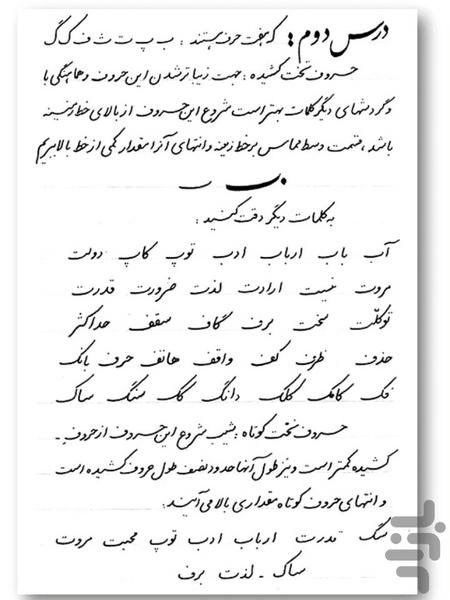 درس دوم: که هفت حرف هستند : ب پ ت ث ف ک گ
حروف تخت کشیده : جهت زیباتر شدن این حروف و هماهنگی با
و گردشهای دیگر کلمات بهتر است شروع این حروف از بالای خط زمینه
باشد ، قسمت وسط مماس بر خط زمینه و انتهای آنرا مقدار کمی از خط بالا ببریم
ب
به کلمات دیگر دقت کنید :
آب باب ارباب ادب توپ کاپ دولت
مروت نیست ارادت لذت ضرورت قدرت
توکلت سخت برف گاف سقف حداکثر
حذف ظرف کف واقف هاتف حرف بانک
فک کامک کلک دانگ گک سنگ ساک
حروف تخت کوتاه : شیب شروع این حروف از حروف -
کشیده کمتر است و نیز طول آنها حدود نصف طول حروف کشیده است
و انتهای حروف کوتاه مقداری بالا می آیند :
سگ قدرت ارباب ادب توپ محبت مروت
ساک - لذت برف
بازار